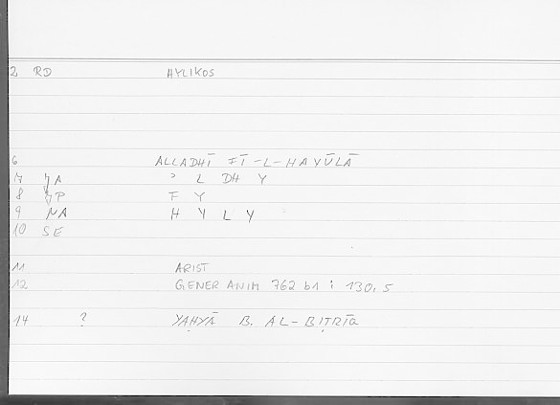 2 RD HYLIKOS
6 ALLADHĪ FĪ-L-HAYŪLĀ
7 A ʾ L DH Y
8 P F Y
9 NA H Y L Y
10 SE
11 ARIST
12 GENER ANIM 762 b1 : 130,5
14 ? YAḤYĀ B. AL-BIṬRĪQ